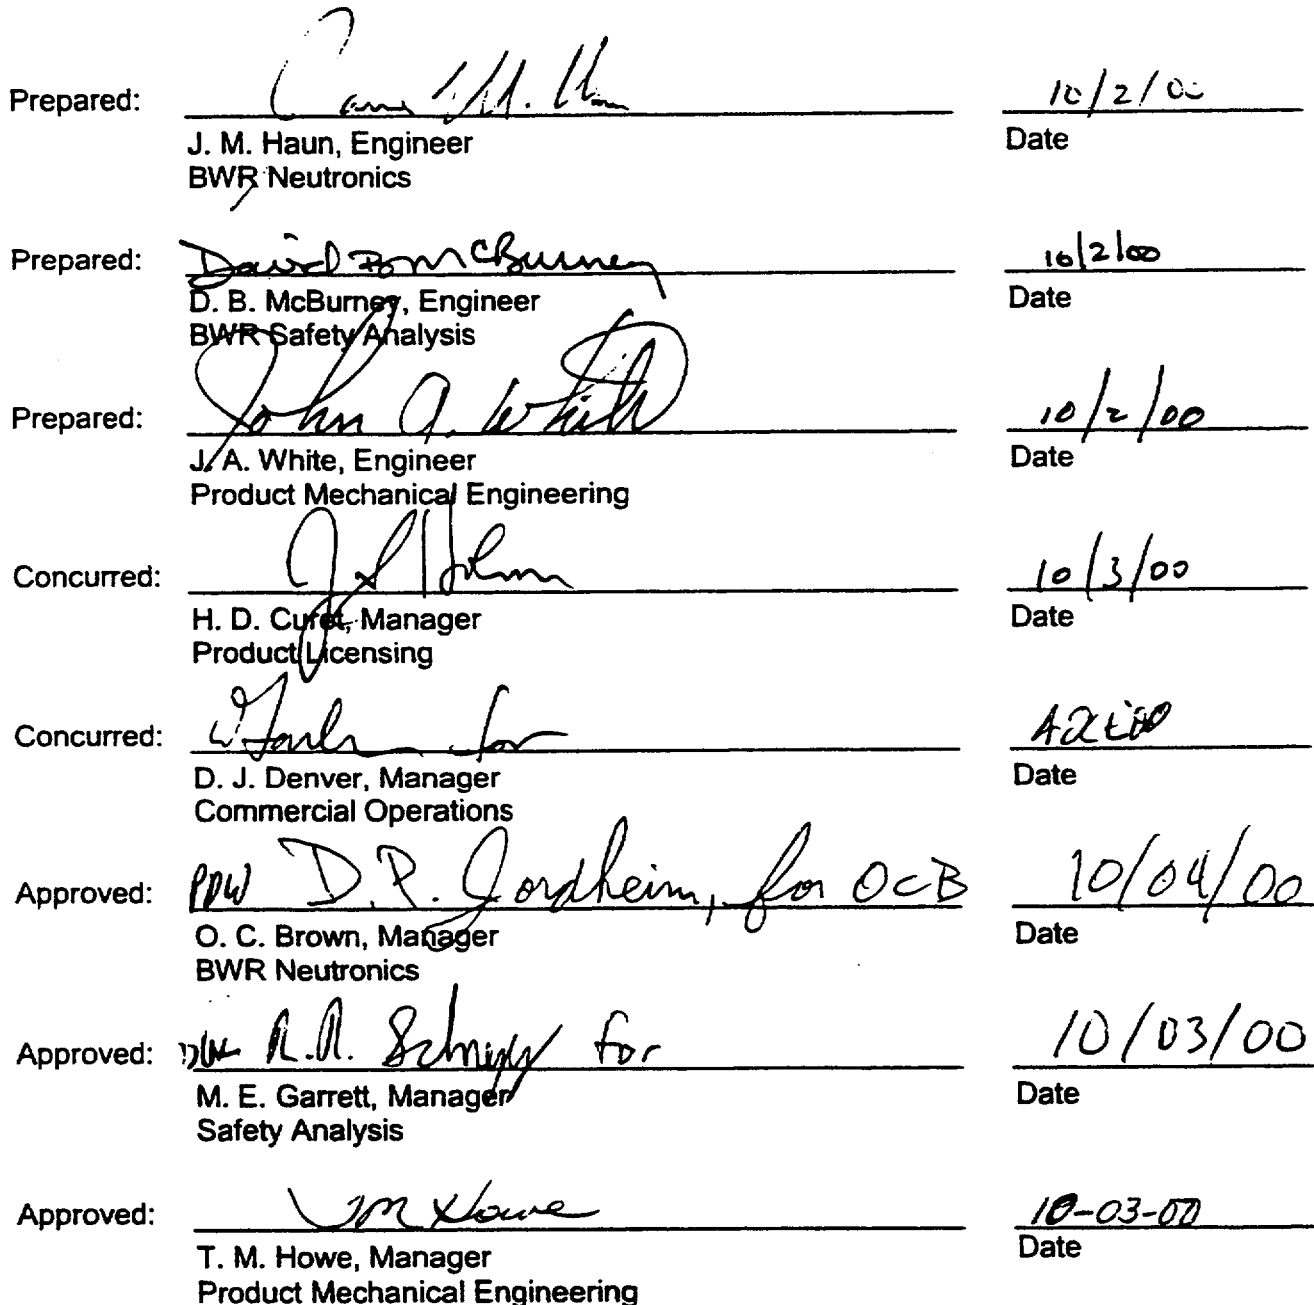 Prepared: 10/2/00
J. M. Haun, Engineer Date
BWR Neutronics
Prepared: David B McBurney 10/2/00
D. B. McBurney, Engineer Date
BWR Safety Analysis
Prepared: John A. White 10/2/00
J. A. White, Engineer Date
Product Mechanical Engineering
Concurred: 10/3/00
H. D. Curet, Manager Date
Product Licensing
Concurred: for
D. J. Denver, Manager Date
Commercial Operations
Approved: D. P. Jordheim, for OCB 10/04/00
O. C. Brown, Manager Date
BWR Neutronics
Approved: R.R. for 10/03/00
M. E. Garrett, Manager Date
Safety Analysis
Approved: TM Howe 10-03-00
T. M. Howe, Manager Date
Product Mechanical Engineering